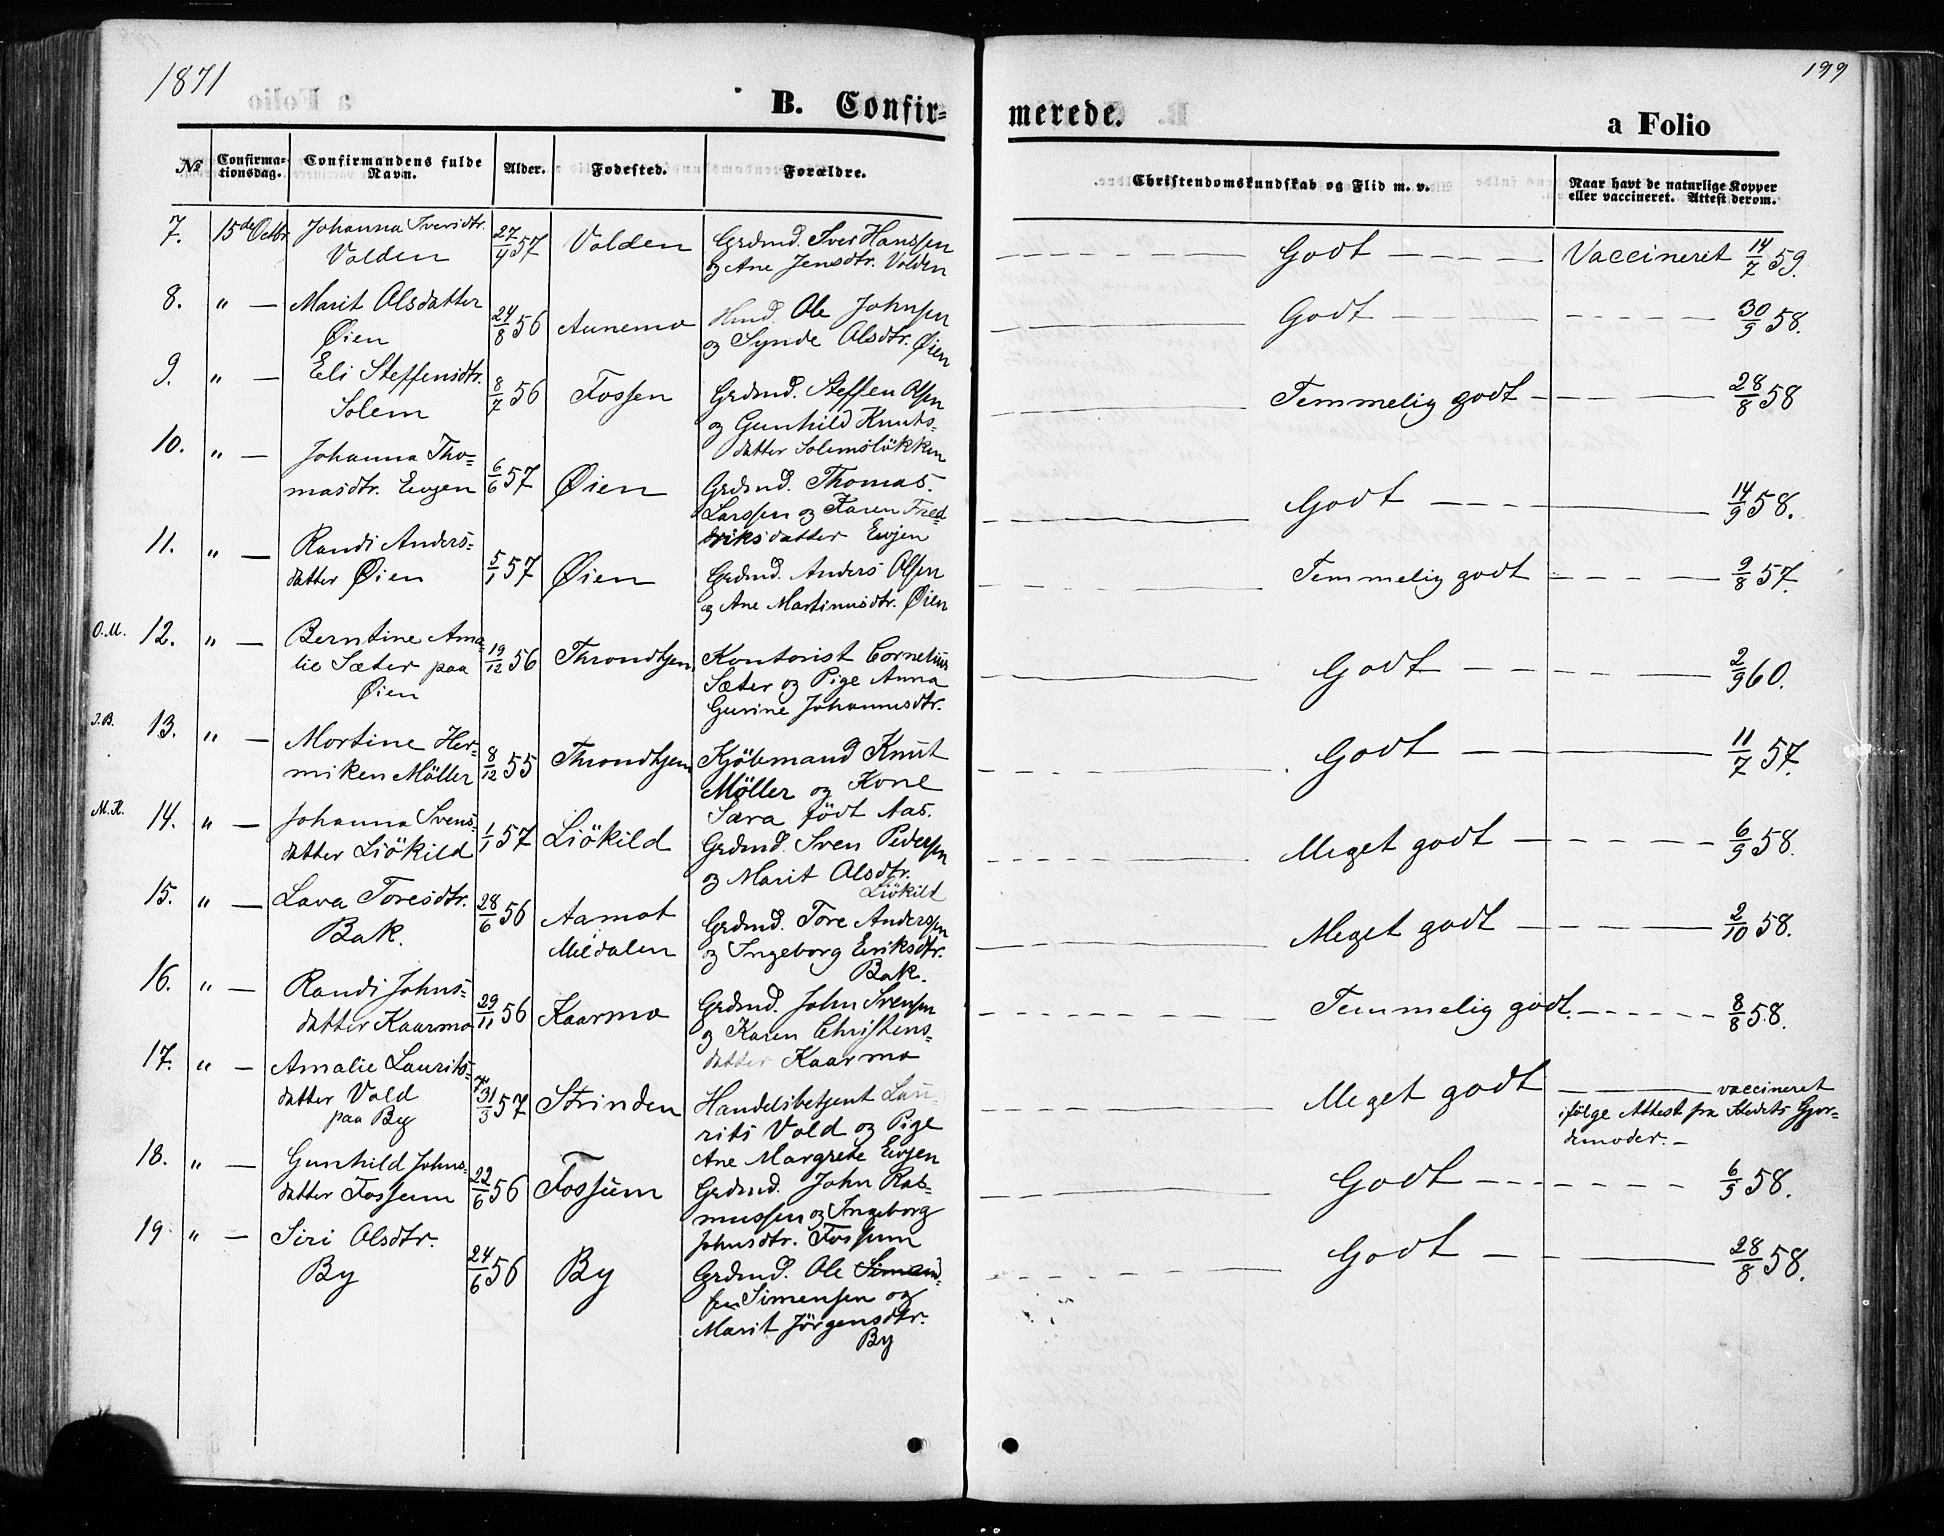 1871
199
B. Confir-
merede.
a Folio
№
Confirma-
tionsdag.
Confirmandens fulde
Navn.
Alder.
Fødested.
Forældre.
Christendomskundskab og Flid m. v.
Naar havt de naturlige Kopper
eller vaccineret. Attest derom.
7. 15de Octbr Johanna Iversdtr. 27/9 57 Volden Grdmd. Iver Hanssen Godt Vaccineret 14/7 59.
Volden og Ane Jensdtr. Volden
8. " — Marit Olsdatter 24/8 56 Aunemo Hmd. Ole Johnsen Godt 30/9 58.
Øien og Synde Olsdtr. Øien
9. " — Eli Steffensdtr. 8/7 56 Fossen Grdmd. Steffen Olsen Temmelig godt 28/8 58
Solem og Gunhild Knuts-
datter Solemslökken
10. " — Johanna Tho- 6/6 57 Øien Grdmd. Thomas Godt 14/9 58.
masdtr. Evjen Larssen og Karen Fred-
driksdatter Evjen
11. " — Randi Anders- 5/1 57 Øien Grdmd. Anders Olsen Temmelig godt 9/8 57.
datter Øien og Ane Martinusdtr. Øien
O.M. 12. " — Berntine Ama- 19/12 56 Throndhjem Kontorist Cornelius Godt 2/9 60.
lie Sæter paa Sæter og Pige Anna
Øien Gurine Johannisdtr.
J.B. 13. " — Mortine Her- 8/12 55 Throndhjem Kjöbmand Knut Godt 11/7 57.
miken Möller Möller og Kone
Sara födt Aas.
M.K. 14. " — Johanna Svens- 1/1 57 Liökild Grdmd. Sven Pedersen Meget godt 6/9 58.
datter Liökild og Marit Olsdtr.
Liökild
15. " — Lava Toresdtr. 28/6 56 Aamot Grdmd. Tore Anderssen Meget godt 2/10 58.
Bak. Meldalen og Ingeborg Eriksdtr.
Bak.
16. " — Randi Johns- 29/11 56 Kaarmo Grdmd. John Svensen Temmelig godt. 8/8 58.
datter Kaarmo og Karen Christens-
datter Kaarmo
17. " — Amalie Laurits- 31/3 57 Strinden Handelsbetjent Lau- Meget godt vaccineret
datter Vold rits Vold og Pige ifölge Attest fra Stedets Gjor-
paa By Ane Margrete Evjen demoder.
18. " — Gunhild Johns- 22/6 56 Fossum Grdmd. John Ras- Godt 6/9 58.
datter Fossum mussen og Ingeborg
Johnsdtr. Fossum
19. " — Siri Olsdtr. 24/6 56 By Grdmd. Ole Simen- Godt 28/8 58.
By sen Simensen og
Marit Jörgensdtr.
By